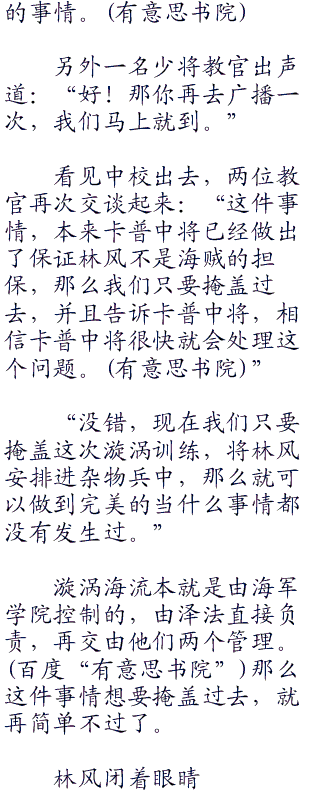 的事情。(有意思书院)
另外一名少将教官出声
道：“好！那你再去广播一
次，我们马上就到。”
看见中校出去，两位教
官再次交谈起来：“这件事
情，本来卡普中将已经做出
了保证林风不是海贼的担
保，那么我们只要掩盖过
去，并且告诉卡普中将，相
信卡普中将很快就会处理这
个问题。(有意思书院)”
“没错，现在我们只要
掩盖这次漩涡训练，将林风
安排进杂物兵中，那么就可
以做到完美的当什么事情都
没有发生过。”
漩涡海流本就是由海军
学院控制的，由泽法直接负
责，再交由他们两个管理。
(百度“有意思书院”)那么
这件事情想要掩盖过去，就
再简单不过了。
林风闭着眼睛